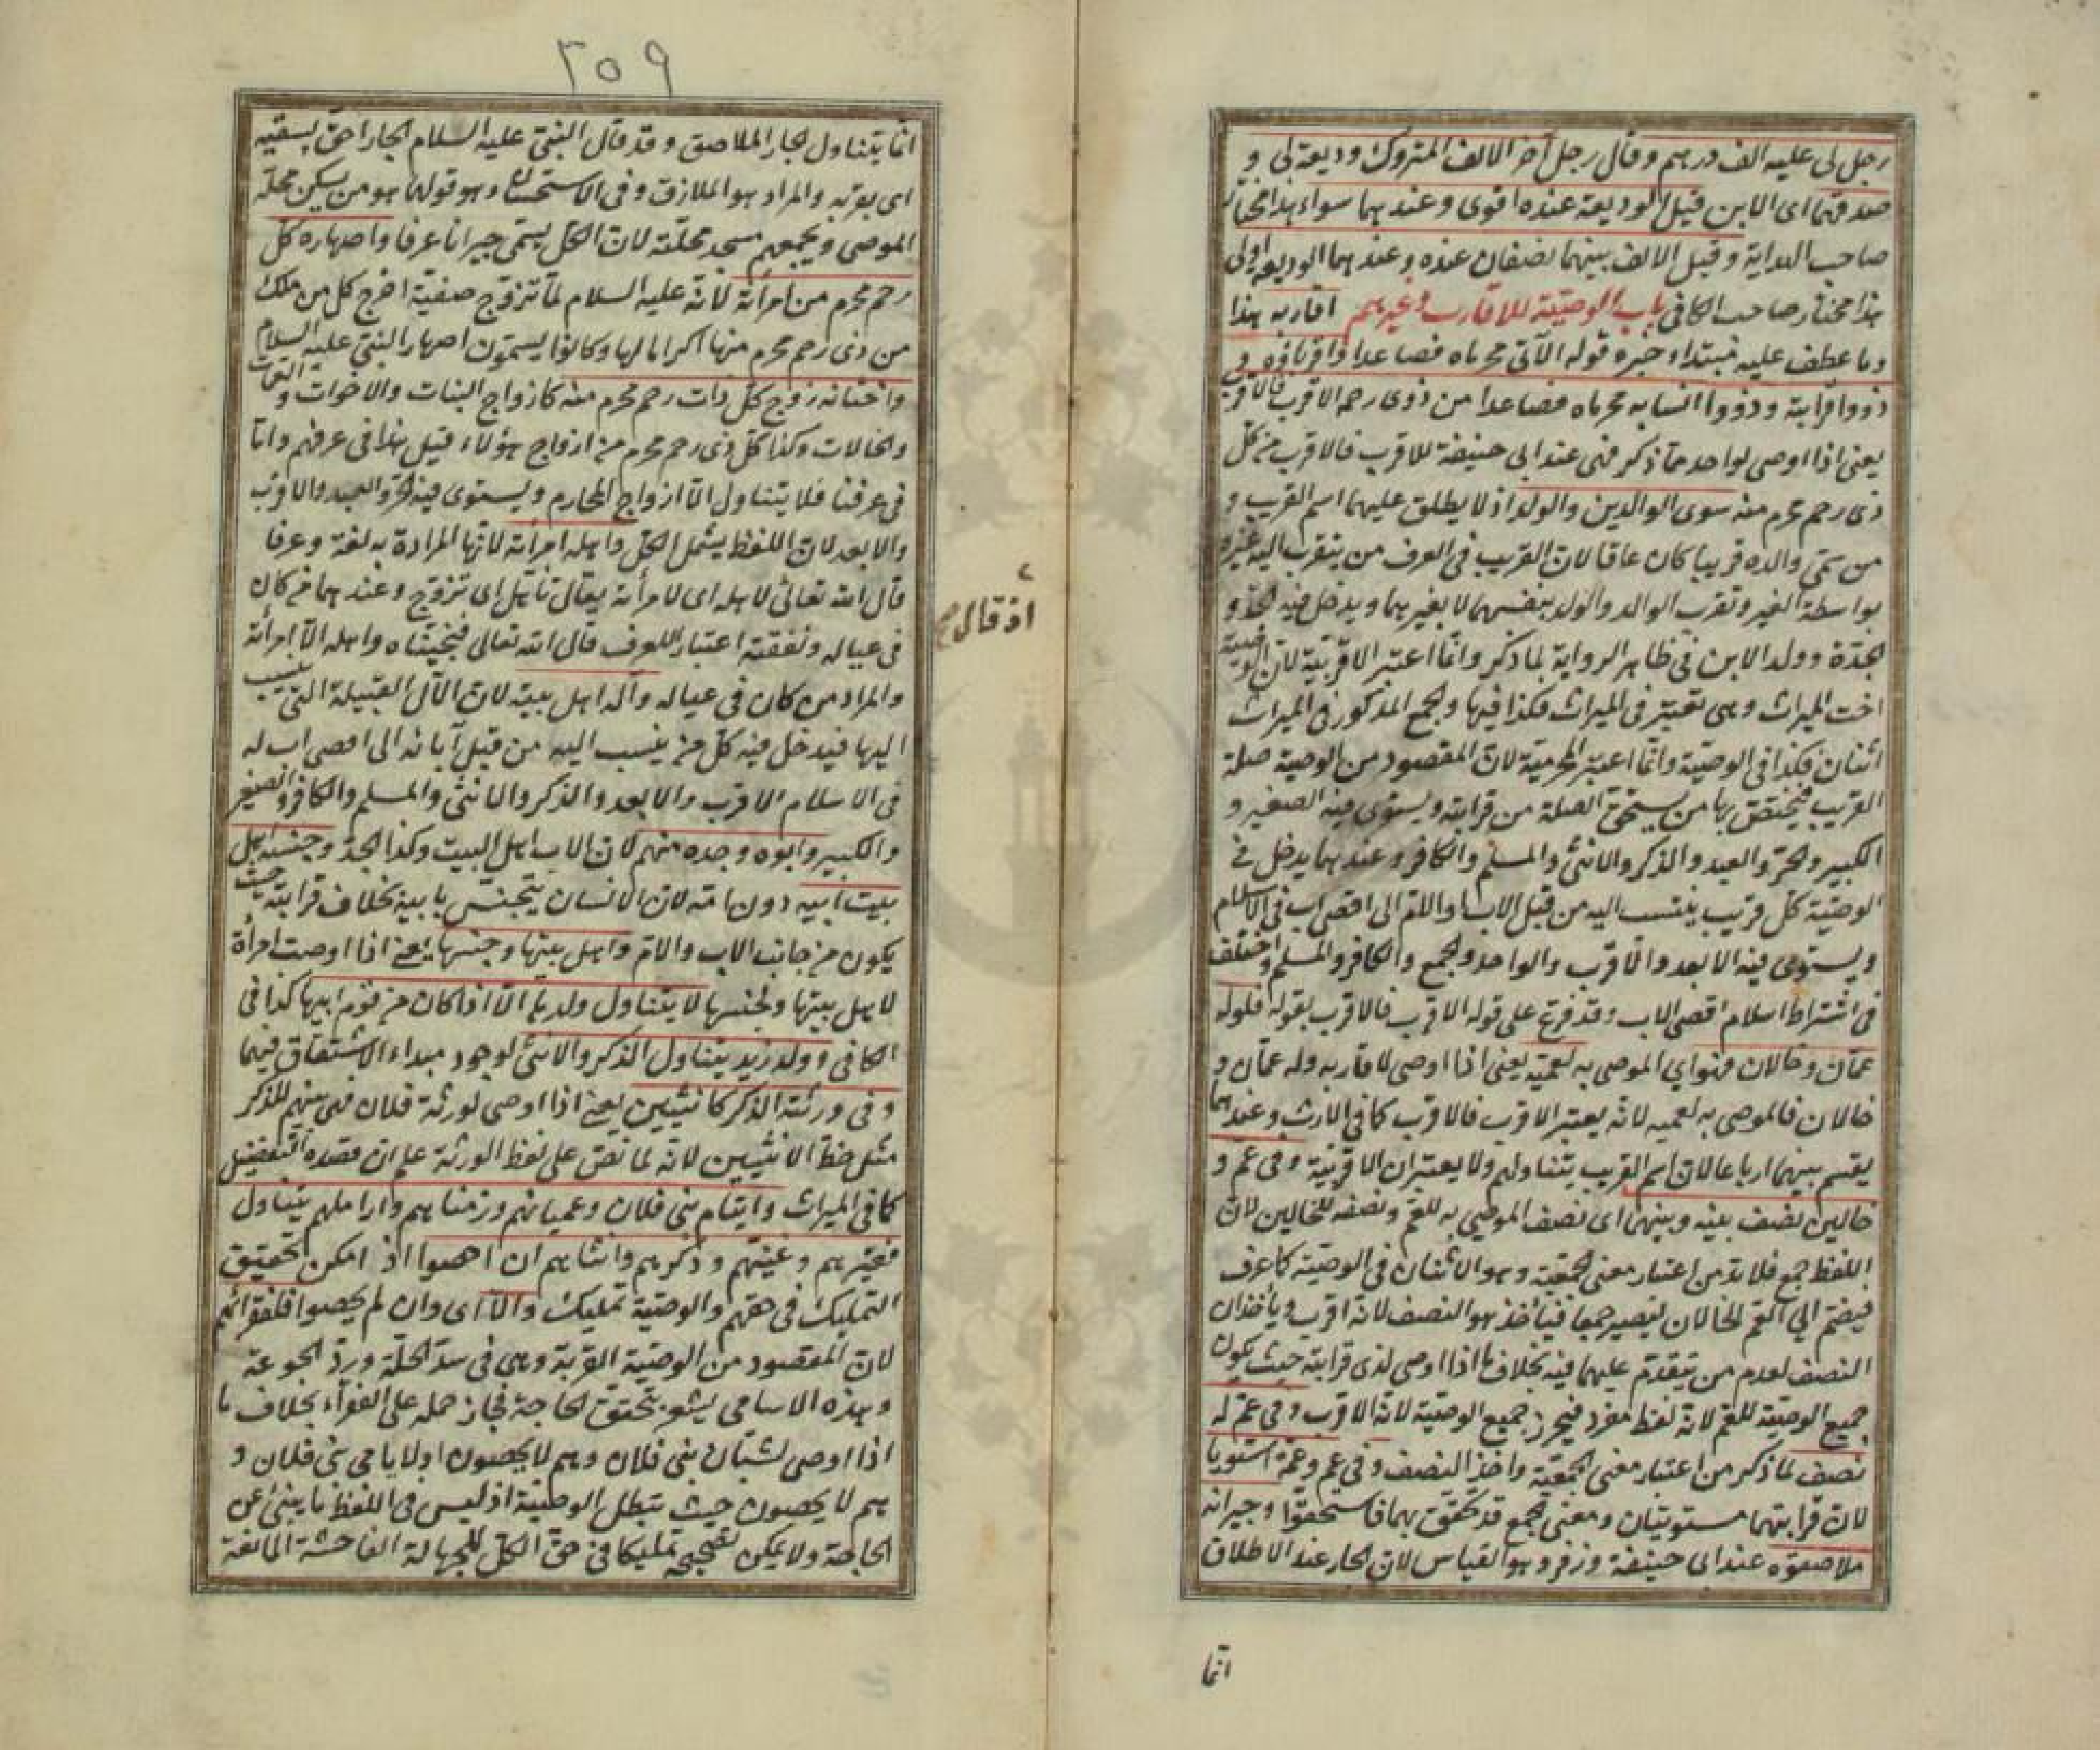 رجل لى عليه الف درهم وقال رجل آخر الالف المتروك وديعة لى و
صدقهما اى الابن قيل الوديعة عنده اقوى وعندهما سواء هذا مختار
صاحب الهداية وقيل الالف بينهما نصفان عنده وعندهما الوديعة اولى
هذا مختار صاحب الكافى باب الوصيّة للاقارب وغيرهم اقاربه هذا
وما عطف عليه مبتداء خبره قوله الآتى محرماه فصاعدا واقرباؤه و
ذووا قرابته وذووا انسابه محرماه فصاعدا من ذوى رحمه الاقرب فالاقرب
يعنى اذا اوصى لواحد ممّا ذكر فهى عند ابى حنيفة للاقرب فالاقرب من كلّ
ذى رحم محرم منه سوى الوالدين والولد اذ لا يطلق عليهما اسم القريب و
من سمّى والده قريبا كان عاقا لانّ القريب فى العرف من يتقرب اليه غيره
بواسطة الغير وتقرب الوالد والولد بنفسهما لا بغيرهما ويدخل فيه الجدّ و
الجدّة وولد الابن فى ظاهر الرواية لما ذكر وانّما اعتبر الاقربيّة لانّ الوصيّة
اخت الميراث وهى تعتبر فى الميراث فكذا فيها والجمع المذكور فى الميراث
اثنان فكذا فى الوصيّة وانّما اعتبر المحرميّة لانّ المقصود من الوصية صلة
القريب فيختصّ بها من يستحقّ الصلة من قرابته ويستوى فيه الصغير و
الكبير والحرّ والعبد والذكر والانثى والمسلم والكافر وعندهما يدخل فى
الوصيّة كلّ قريب ينتسب اليه من قبل الاب او الامّ الى اقصى اب فى الاسلام
ويستوى فيه الابعد والاقرب والواحد والجمع والكافر والمسلم واختلف
فى اشتراط اسلام اقصى الاب وقد فرع على قوله الاقرب فالاقرب بقوله فلو له
عمّان وخالان فهو اي الموصى به لعميّه يعنى اذا اوصى لاقاربه وله عمّان و
خالان فالموصى به لعميه لانّه يعتبر الاقرب فالاقرب كما فى الارث وعندهما
يقسم بينهما ارباعا لانّ اسم القريب يتناولهم ولا يعتبران الاقربيّة وفى عم و
خالين نصف بينه وبينهما اى نصف الموصى به للعمّ ونصفه للخالين لانّ
اللفظ جمع فلا بدّ من اعتبار معنى الجمعيّة وهو الاثنان فى الوصيّة كما عرف
فيضمّ الي العمّ الخالان ليصير جمعا فيأخذ هو النصف لانّه اقرب ويأخذان
النصف لعدم من يتقدّم عليهما فيه بخلاف ما اذا اوصى لذى قرابته حيث يكون
جميع الوصيّة للعمّ لانّه لفظ مفرد فيحرز جميع الوصيّة لانّه الاقرب وفى عمّ له
نصف لما ذكر من اعتبار معنى الجمعيّة واخذ النصف وفى عم وعمّة استويا
لانّ قرابتهما مستويتان ومعنى الجمع قد تحقّق بهما فاستحقّوا وجيرانه
ملاصقوه عند ابى حنيفة وزفر وهو القياس لانّ الجار عند الاطلاق
انّما
٢٥٩
انّما يتناول الجار الملاصق وقد قال النبىّ عليه السلام الجار احقّ بسقبه
اى بقربه والمراد هو الملازق وفى الاستحسان وهو قولهما هو من يسكن محلّة
الموصى ويجمعهم مسجد محلّته لانّ الكلّ يسمّى جيرانا عرفا واصهاره كلّ
رحم محرم من امرأته لانّه عليه السلام لمّا تزوّج صفيّة اخرج كل من ملك
من ذى رحم محرم منها اكراما لها وكانوا يسمّون اصهار النبىّ عليه السلام
واختانه زوج كلّ ذات رحم محرم منه كازواج البنات والاخوات والعمات
والخالات وكذا كلّ ذى رحم محرم من ازواج هؤلاء قيل هذا فى عرفهم وامّا
فى عرفنا فلا يتناول الّا ازواج المحارم ويستوى فيه الحرّ والعبد والاقرب
والابعد لانّ اللفظ يشمل الكلّ واهله امرأته لانّها المرادة به لغة وعرفا
قال الله تعالى لاهله اى لامرأته يقال تأهل اى تزوّج وعندهما من كان
اذ قال صح
فى عياله ونفقته اعتبارا للعرف قال الله تعالى فنجيّناه واهله الّا امرأته
والمراد من كان فى عياله وآله اهل بيته لانّ الآل القبيلة التى ينسب
اليها فيدخل فيه كلّ من ينسب اليه من قبل آبائه الى اقصى اب له
فى الاسلام الاقرب والابعد والذكر والانثى والمسلم والكافر والصغير
والكبير وابوه وجده منهم لانّ الاب اهل البيت وكذا الجدّ وجنسه اهل
بيت ابيه دون امّه لانّ الانسان يتجنّس بابيه بخلاف قرابته حيث
يكون من جانب الاب والامّ واهل بيتها وجنسها يعنى اذا اوصت امرأة
لاهل بيتها ولجنسها لا يتناول ولدها الّا اذا كان من قوم ابيها كذا فى
الكافى وولد زيد يتناول الذكر والانثى لوجود مبداء الاشتقاق فيهما
وفى ورثته الذكر كانثيين يعنى اذا اوصى لورثة فلان فهى بينهم للذكر
مثل حظّ الانثيين لانّه لما نصّ على لفظ الورثة علم انّ قصده التفضيل
كما فى الميراث وايتام بنى فلان وعميانهم وزمناهم واراملهم يتناول
فقيرهم وغنيّهم وذكرهم وانثاهم ان احصوا اذ امكن تحقيق
التمليك فى حقهم والوصيّة تمليك والّا اى وان لم يحصوا فلفقرائهم
لانّ المقصود من الوصيّة القربة وهى فى سدّ الخلّة وردّ الجوعة
وهذه الاسامى يشعر بتحقّق الحاجة فجاز حمله على الفقراء بخلاف ما
اذا اوصى لشبّان بنى فلان وهم لا يحصون او لايامى بنى فلان و
هم لا يحصون حيث تبطل الوصيّة اذ ليس فى اللفظ ما ينبئ عن
الحاجة ولا يمكن تصحيحه تمليكا فى حقّ الكلّ للجهالة الفاحشة المانعة